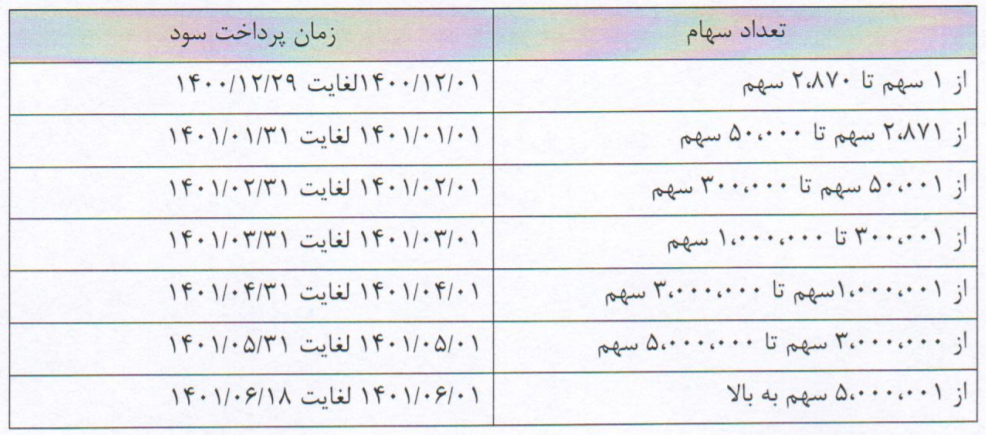 تعداد سهام	زمان پرداخت سود
از ۱ سهم تا ۲،۸۷۰ سهم	۱۴۰۰/۱۲/۰۱لغایت ۱۴۰۰/۱۲/۲۹
از ۲،۸۷۱ سهم تا ۵۰،۰۰۰ سهم	۱۴۰۱/۰۱/۰۱ لغایت ۱۴۰۱/۰۱/۳۱
از ۵۰،۰۰۱ سهم تا ۳۰۰،۰۰۰ سهم	۱۴۰۱/۰۲/۰۱ لغایت ۱۴۰۱/۰۲/۳۱
از ۳۰۰،۰۰۱ تا ۱،۰۰۰،۰۰۰ سهم	۱۴۰۱/۰۳/۰۱ لغایت ۱۴۰۱/۰۳/۳۱
از ۱،۰۰۰،۰۰۱سهم تا ۳،۰۰۰،۰۰۰ سهم	۱۴۰۱/۰۴/۰۱ لغایت ۱۴۰۱/۰۴/۳۱
از ۳،۰۰۰،۰۰۰ سهم تا ۵،۰۰۰،۰۰۰ سهم	۱۴۰۱/۰۵/۰۱ لغایت ۱۴۰۱/۰۵/۳۱
از ۵،۰۰۰،۰۰۱ سهم به بالا	۱۴۰۱/۰۶/۰۱ لغایت ۱۴۰۱/۰۶/۱۸